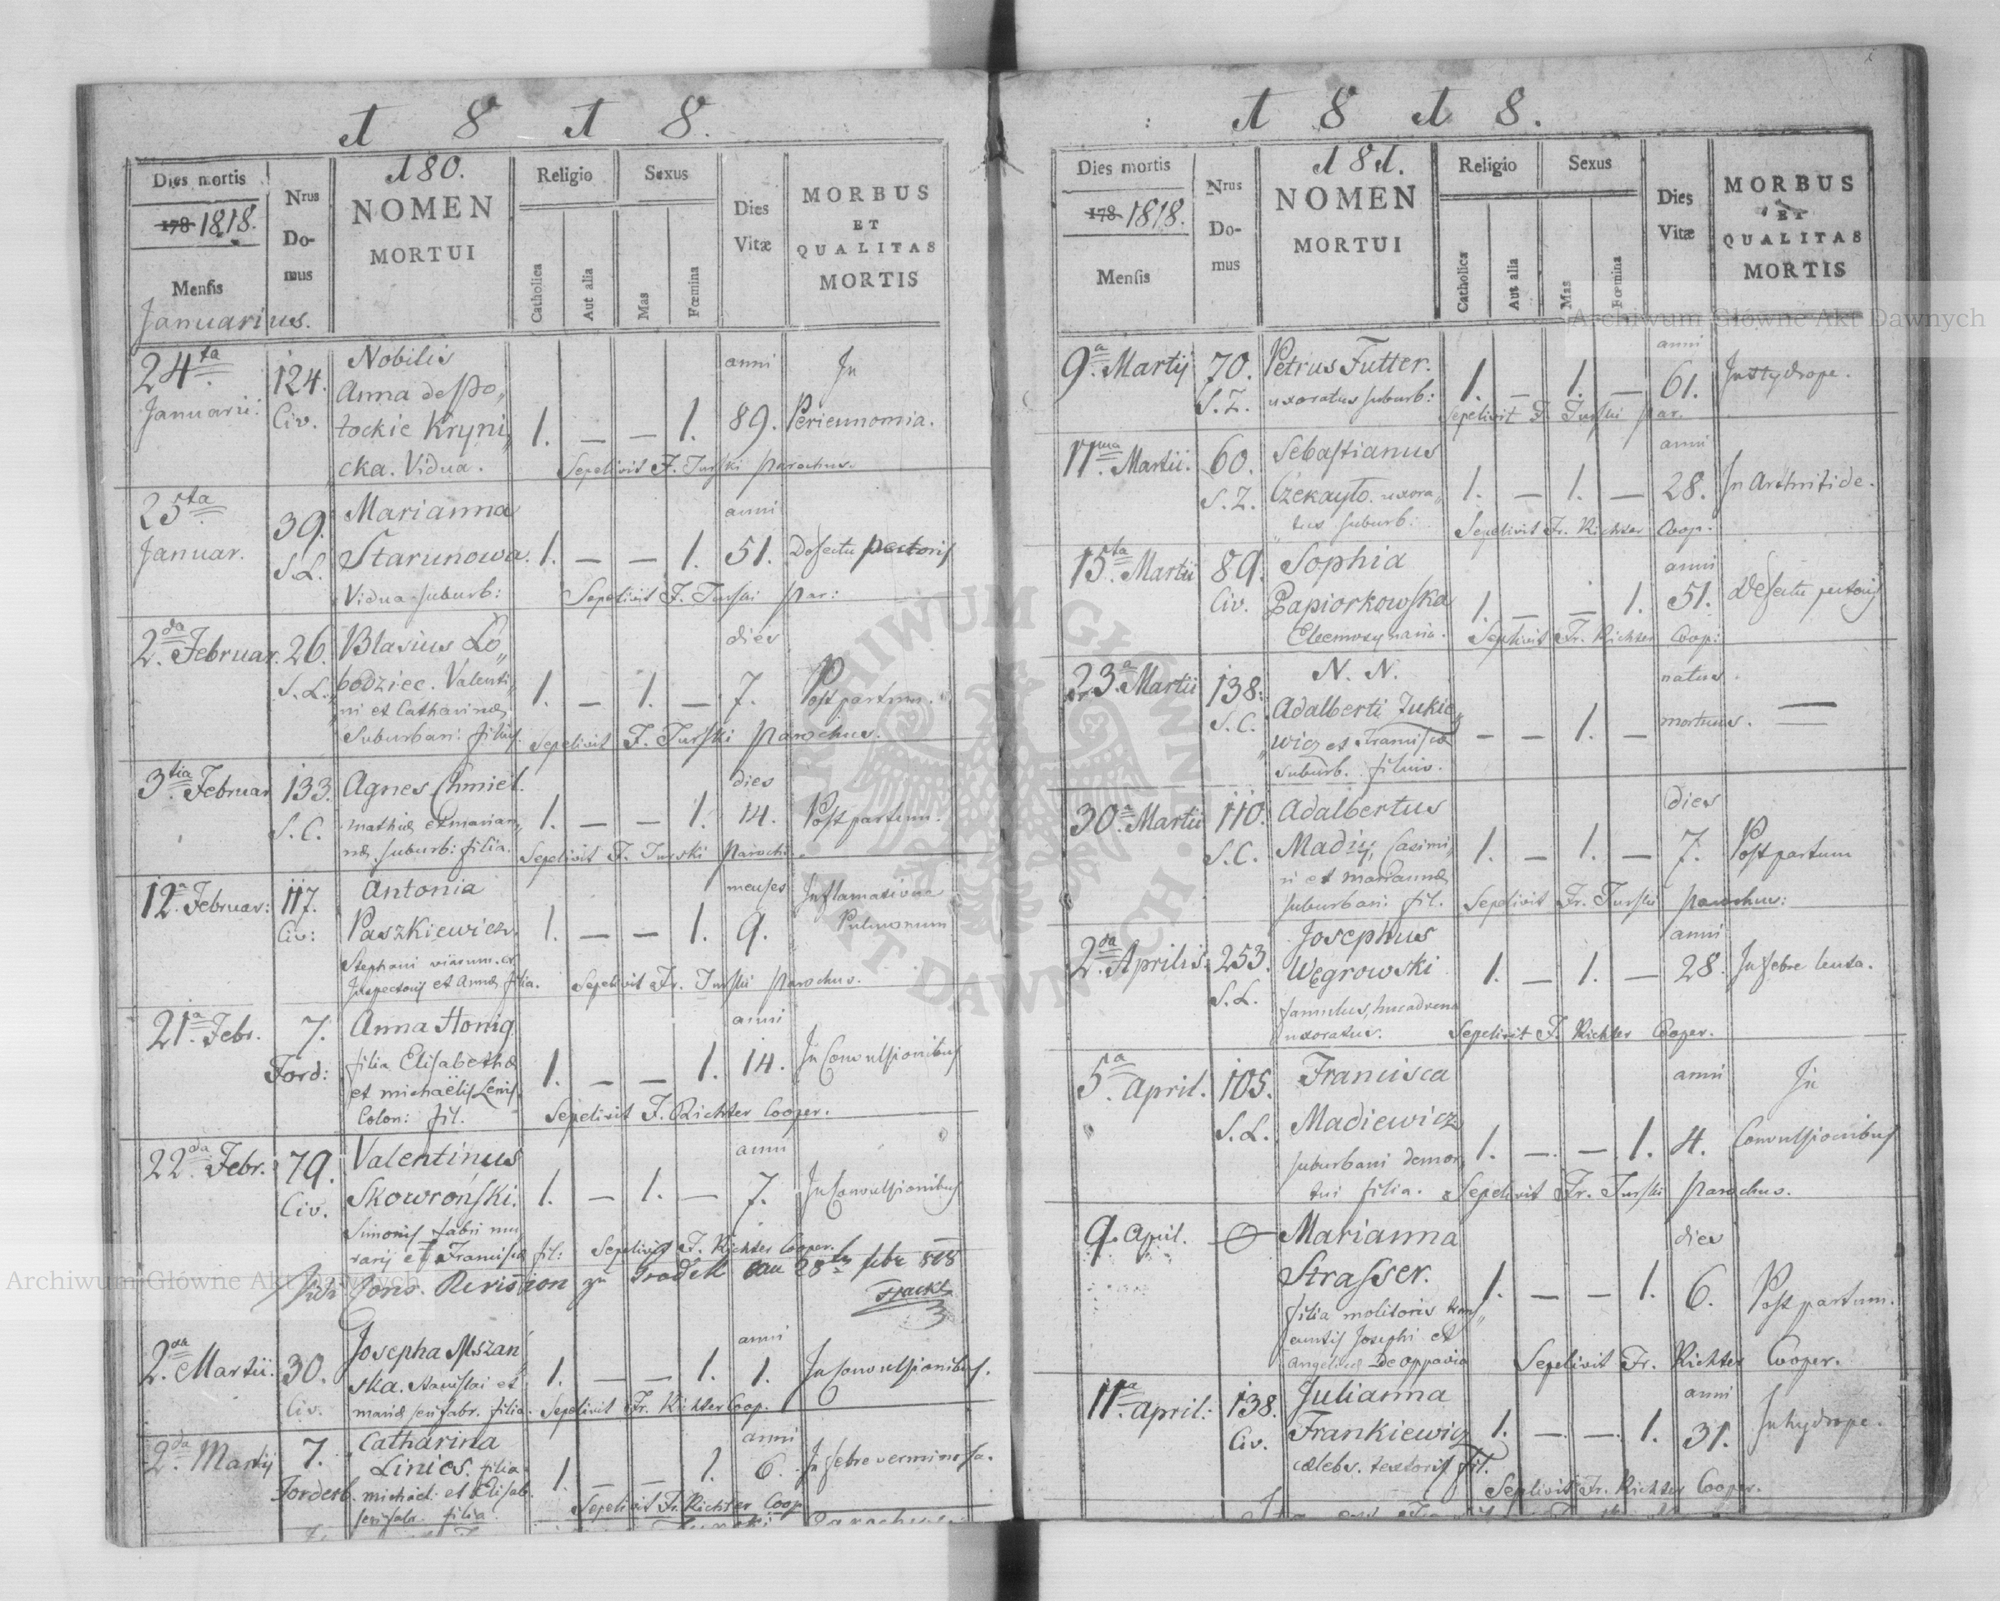 1 8 1 8.
180.
Dies mortis
178 1818.
Mensis
Januarius.
Nrus
Do-
mus
NOMEN
MORTUI
Religio
Catholica
Aut alia
Sexus
Mas
Fœmina
Dies
Vitæ
MORBUS
ET
QUALITAS
MORTIS
24ta Januarii.
124. Civ.
Nobilis
Anna de Po„
tockie Kryni„
cka. Vidua.
1. — — 1.
anni
89.
In
Sepelivit F. Turski Parochus.
25ta
Januar.
39.
S.L.
Marianna
Starunowa.
Vidua suburb:
1. — — 1.
anni
51.
Defectu pectoris
Sepelivit F. Turski Par:
2da Februar.
26.
S.L.
Blasius Lo„
bodziec. Valenti„
ni et Catharinæ
Suburban: filius.
1. — 1. —
dies
7.
Post partum.
Sepelivit F. Turski Parochus.
3tia Februar
133.
S.C.
Agnes Chmiel.
Mathiæ et Marian„
næ suburb: filia.
1. — — 1.
dies
14.
Post partum.
Sepelivit F. Turski Paroch:
12a Februar:
117.
Civ:
Antonia
Paszkiewicz.
Stephani viarum
Inspectoris et Annæ filia.
1. — — 1.
menses
9.
Inflamatione
Pulmonum
Sepelivit Fr. Turski Parochus.
21a Febr.
7.
Ford:
Anna Honig
filia Elisabethæ
et Michaëlis
Colon: fil.
1. — — 1.
anni
14.
In Convulsionibus
Sepelivit F. Richter Cooper.
22da Febr.
79.
Civ.
Valentinus
Skowroński.
Simonis fabri mu
rarij et Franciscæ fil:
1. — 1. —
anni
7.
In Convulsionibus
Sepelivit F. Richter Cooper.
Revision zu Grodek am 28ten febr 818
2da Martii.
30.
Civ.
Josepha Mszań„
ska. Stanislai et
Mariæ filia.
1. — — 1.
anni
1.
In Convulsionibus.
Sepelivit Fr. Richter Coop.
2da Martij
7.
Forderb.
Catharina
Linies. filia
michael: et Elisab.
filia.
1. — — 1.
anni
6.
In febre verminosa.
Sepelivit Fr. Richter Coop
Turski Parochus.
1 8 1 8.
181.
Dies mortis
178 1818.
Mensis
Nrus
Do-
mus
NOMEN
MORTUI
Religio
Catholica
Aut alia
Sexus
Mas
Fœmina
Dies
Vitæ
MORBUS
ET
QUALITAS
MORTIS
9a Martij
70.
S.Z.
Petrus Futter.
uxoratus suburb:
1. — 1. —
anni
61.
In Hydrope.
Sepelivit F. Turski Par.
11ma Martii.
60.
S.Z.
Sebastianus
Czekayło. uxora„
tus suburb:
1. — 1. —
anni
28.
In Arthritide.
Sepelivit Fr. Richter Coop.
15ta Martii
89.
Civ.
Sophia
Papiorkowska
Eleemosynaria.
1. — — 1.
anni
51.
Defectu pectoris
Sepelivit Fr. Richter Coop:
23a Martii
138.
S.C.
N. N.
Adalberti Zukie„
wicz et Franciscæ
suburb. filius.
— — 1. —
natus
mortuus.
30a Martii
110.
S.C.
Adalbertus
Madij, Casimi„
ri et Mariannæ
suburban: fil.
1. — 1. —
dies
7.
Post partum
Sepelivit Fr. Turski Parochus:
2da Aprilis.
253.
S.L.
Josephus
Węgrowski
famulus,
uxoratus.
1. — 1. —
anni
28.
In febre lenta.
Sepelivit F. Richter Cooper.
5a April.
105.
S.L.
Francisca
Madiewicz
suburbani demor„
tui filia.
1. — — 1.
anni
4.
In
Convulsionibus
Sepelivit Fr. Turski Parochus.
9. April.
Marianna
Strasser.
filia molitoris tran„
euntis Josephi et
Angelicæ De Oppavia
1. — — 1.
dies
6.
Post partum.
Sepelivit Fr. Richter Cooper.
11a April:
138.
Civ.
Julianna
Frankiewicz
cælebs. textoris fil.
1. — — 1.
anni
31.
In hydrope.
Sepelivit Fr. Richter Cooper.
Archiwum Główne Akt Dawnych
Archiwum Główne Akt Dawnych
ARCHIWUM GŁÓWNE AKT DAWNYCH